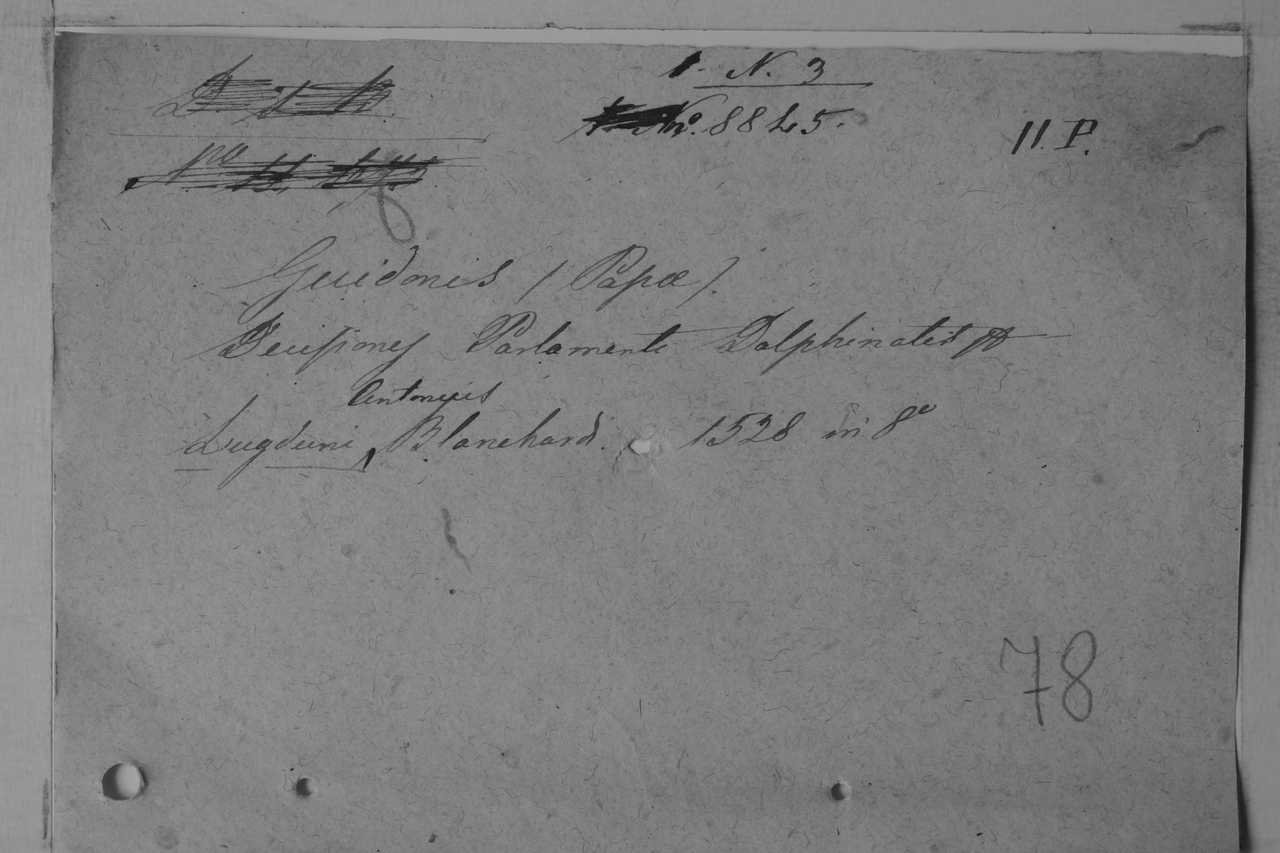 1. N. 3
No. 8845.
11. P.
Guidonis (Papæ).
Decisiones Parlamenti Dalphinatis
Antonius
Lugduni, Blanchard. 1528 in 8º
78